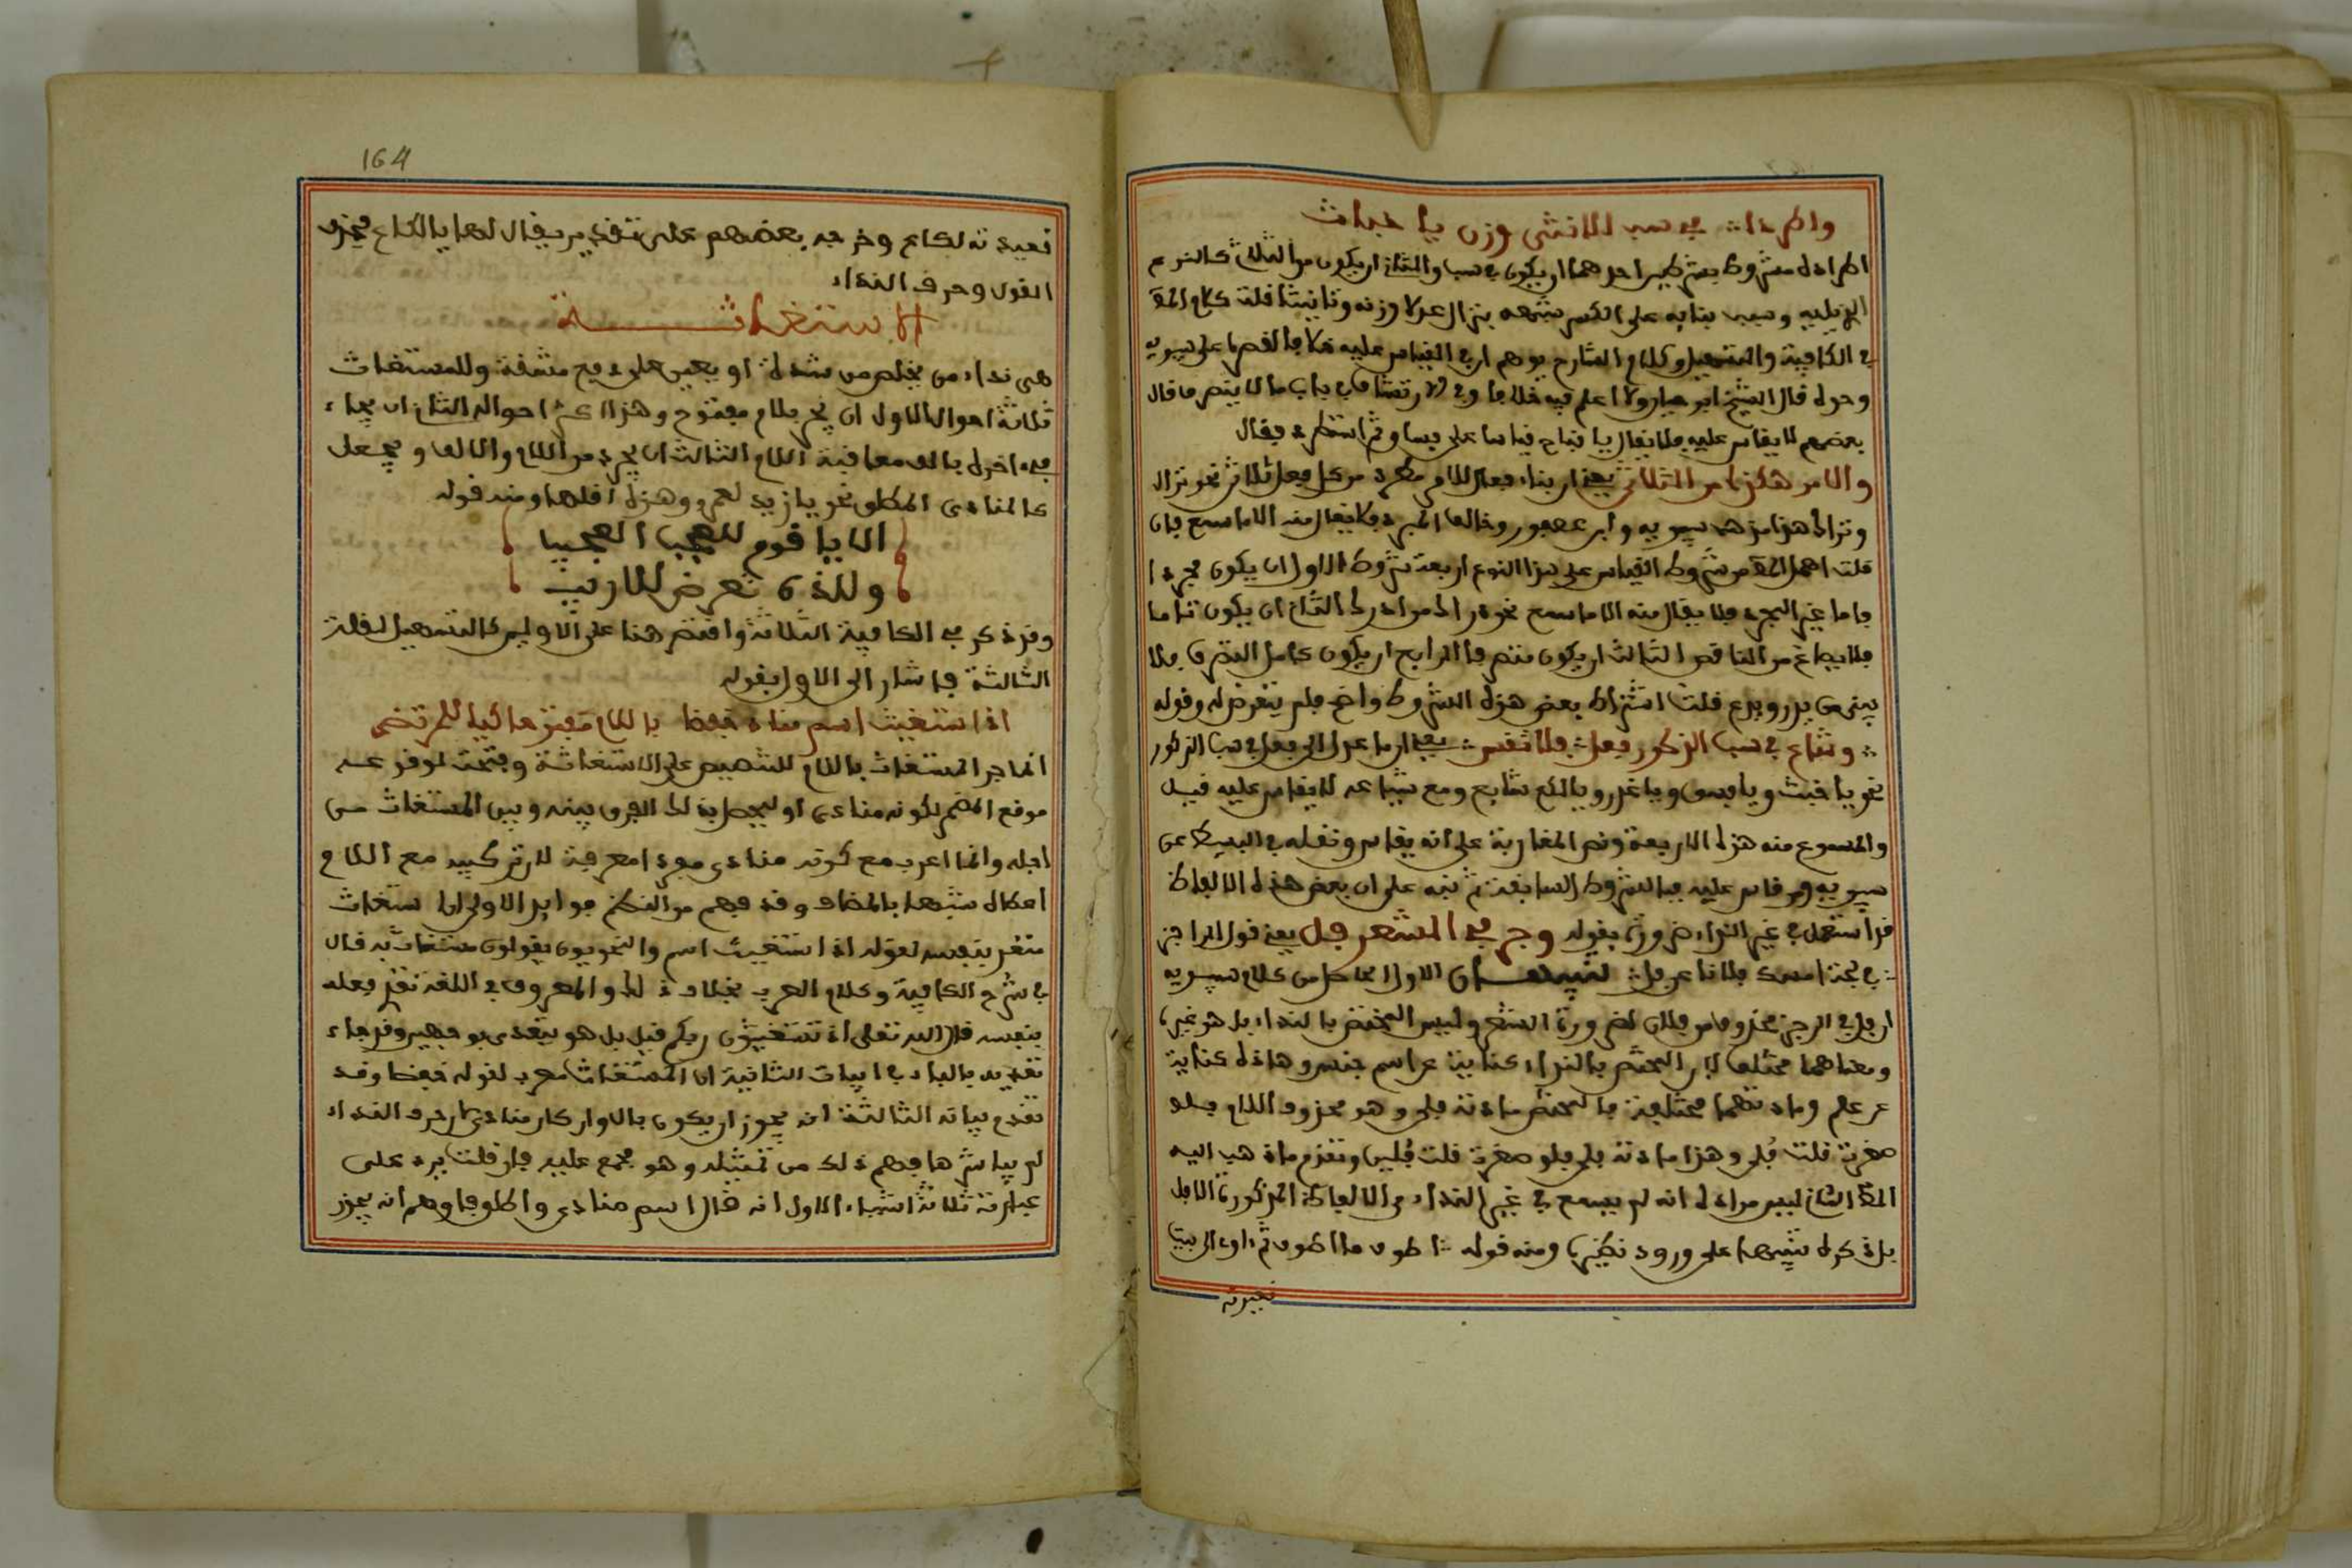 واطردا في سب الانثى وزن يا خباث
اطراده مشروط بشرطين احدهما ان يكون في سب والثاني ان يكون من الثلاثي كالنوع
الذي يليه وسبب بنائه على الكسر شبهه بنزال عدلا وزنة وتانيثا قلت كلام
في الكافية والتسهيل وكلام الشارح يوهم ان في القياس عليه خلافا لنصهما على سيبويه
وحده قال الشيخ ابو حيان ولا اعلم فيه خلافا وفي الارتشاف في باب ما لا ينصرف قال
بعضهم لا يقاس عليه فلا يقال يا قباح قياسا على فساق ثم استطرد فقال
والامر هكذا من الثلاثي يعني ان بناء فعال للامر مطرد من كل فعل ثلاثي نحو نزال
وتراك هذا مذهب سيبويه وابن عصفور وخالف المبرد فلا يقال منه الا ما سمع فان
قلت اهمل من شروط القياس على هذا النوع اربعة شروط الاول ان يكون مجردا
فاما غير المجرد فلا يقال منه الا ما سمع نحو دراك من ادرك الثاني ان يكون تاما
فلا يصاغ من الناقص الثالث ان يكون متصرفا الرابع ان يكون كامل التصرف فلا
يبنى من يذر ويدع قلت اشتراط بعض هذه الشروط واضح فلم يتعرض له وقوله
وشاع في سب الذكور فعل فلا تقس يعني ان ما عدل الى فعل في سب الذكور
نحو يا خبث ويا فسق ويا غدر ويا لكع شايع ومع شياعه لا يقاس عليه قيل
والمسموع منه هذه الاربعة ونص المغاربة على انه يقاس ونقله في البسيط عن
سيبويه ومن قاس عليه فبالشروط السابقة ثم نبه على ان بعض هذه الالفاظ
قد استعمل في غير النداء ضرورة بقوله وجر في الشعر فل يعني قول الراجز
في لجة امسك فلانا عن فل تنبيهان الاول الحاصل من كلام سيبويه
ان فل في الرجز محذوف من فلان لضرورة الشعر وليس المختص بالنداء بل هو غيره
ومعناهما مختلف لان المختص بالنداء كناية عن اسم جنس وهذا كناية
عن علم ومادتهما مختلفة فالمختص مادته فلي وهو محذوف اللام فلو
صغرت قلت فلي وهذا مادته فلن فلو صغرت قلت فلين وتقدم ما ذهب اليه
الثاني ليس مراده انه لم يسمع في غير النداء من الالفاظ المذكورة الا فل
بل ذكره تنبيها على ورود نظيره ومنه قوله اطوف ما اطوف ثم اوي الى بيت
قعيدته

164
قعيدته لكاع وخرجه بعضهم على تقدير يقال لها يا لكاع فحذف
القول وحرف النداء
الاستغاثة
هي نداء من يخلص من شدة او يعين على دفع مشقة وللمستغاث
ثلاثة احوال الاول ان يجر بلام مفتوح وهذا اكثر احواله الثاني ان يجاء
في اخره بالف معاقبة اللام الثالث ان يجرد من اللام والالف ويجعل
كالمنادى المطلق نحو يا زيد لعمرو وهذه اقلها ومنه قوله
الا يا قوم للعجب العجيب
وللذي تعرض للاريب
وقد ذكر في الكافية الثلاثة واقتصر هنا على الاوليين كالتسهيل لقلة
الثالثة فاشار الى الاول بقوله
اذا استغيث اسم مناد خفضا باللام مفتوحا كيا للمرتضى
انما جر المستغاث باللام للتنصيص على الاستغاثة وفتحت لوقوعه
موقع المضمر لكونه منادى او ليحصل بذلك الفرق بينه وبين المستغاث من
اجله وانما اعرب مع كونه منادى مفردا معرفة لان تركيبه مع اللام
اعطاه شبها بالمضاف وقد فهم من النظم فوايد الاولى ان استغاث
متعد بنفسه لقوله اذا استغيث اسم والنحويون يقولون مستغاث به قال
في شرح الكافية وكلام العرب بخلاف ذلك والمعروف في اللغة تعدي فعله
بنفسه قال الله تعلى اذ تستغيثون ربكم قيل بل هو يتعدى بوجهين وقد جاء
تعديه بالباء في ابيات الثانية ان المستغاث معرب لقوله خفضا وقد
تقدم بيانه الثالثة انه يجوز ان يكون بال وان كان منادى لان حرف النداء
لم يباشرها وفهم ذلك من تمثيله وهو مجمع عليه فان قلت يرد على
عبارته ثلاثة اشياء الاول انه قال اسم منادى واطلق فاوهم انه يجوز